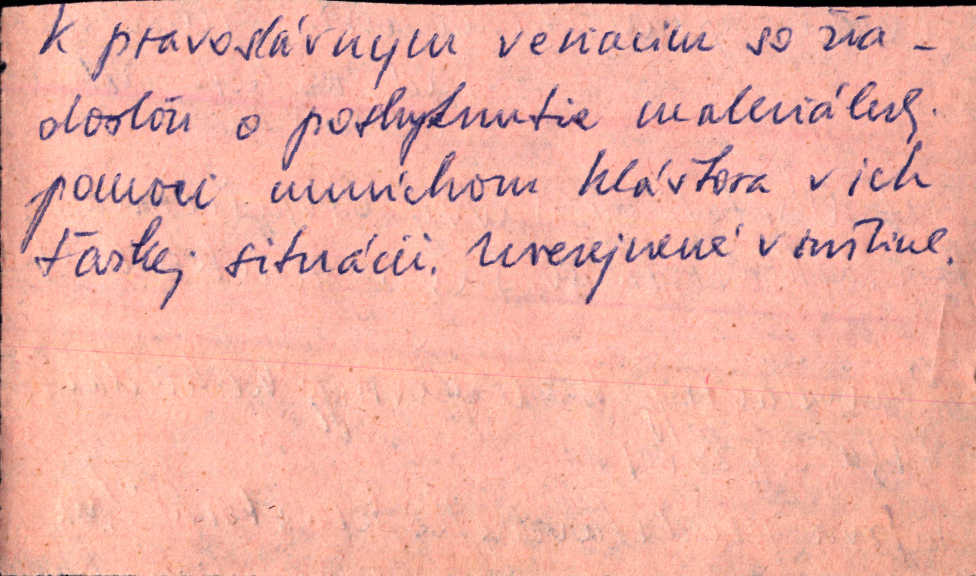 k pravoslávnym veriacim so žia-
dosťou o poskytnutie materiálnej
pomoci mníchom kláštora v ich
ťažkej situácii. Uverejnené v ruštine.